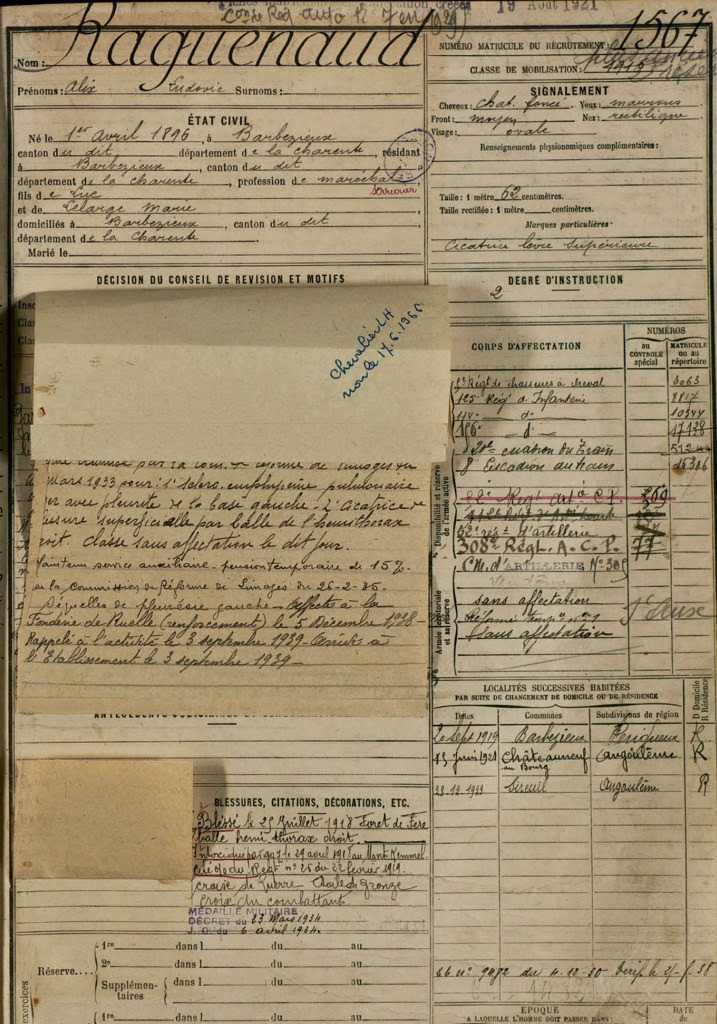 19 Août 1921
NUMÉRO MATRICULE DU RECRUTEMENT : 1567
CLASSE DE MOBILISATION :
Raguenaud
Nom :
Prénoms : Alix Ludovic Surnoms :
ÉTAT CIVIL
Né le 1er avril 1896, à Barbezieux
canton du dit, département de la Charente, résidant
à Barbezieux, canton du dit
département de la Charente, profession de maréchal
serrurier
fils de Luc
et de Lelarge Marie
domiciliés à Barbezieux, canton du dit
département de la Charente
Marié le
SIGNALEMENT
Cheveux : chat. foncé Yeux : marrons
Front : moyen Nez : rectiligne
Visage : ovale
Renseignements physionomiques complémentaires :
Taille : 1 mètre 62 centimètres.
Taille rectifiée : 1 mètre centimètres.
Marques particulières :
Cicatrice lèvre supérieure
DÉCISION DU CONSEIL DE REVISION ET MOTIFS
DEGRÉ D'INSTRUCTION
2
Chevalier LH
17.6.1960
mars 1933 pour :
avec pleurite de la base gauche - 2° cicatrice
superficielle par balle de l'hémithorax
droit. Classé sans affectation le dit jour.
service auxiliaire - pension temporaire de 15%
la Commission de Réforme de Limoges du 26-2-35.
Séquelles de pleurésie gauche - Affecté à la
Fonderie de Ruelle (renforcement) le 5 Décembre 1938
Rappelé à l'activité le 3 septembre 1939 - Arrivé à
l'Etablissement le 3 septembre 1939 -
CORPS D'AFFECTATION
NUMÉROS
au CONTROLE spécial
MATRICULE ou au répertoire
Régt de chasseurs à cheval 3063
125e Rég d'Infanterie
114e d°
d° 17128
20e Escadron du Train
8e Escadron du train
Régt Artie C.P. 269
d'artillerie
308e Régt. A.C.P. 77
CM. d'ARTILLERIE N° 309
sans affectation
Sans affectation
Disponibilité et réserve de l'armée active
Armée territoriale et sa réserve
LOCALITÉS SUCCESSIVES HABITÉES
PAR SUITE DE CHANGEMENT DE DOMICILE OU DE RÉSIDENCE
Dates Communes Subdivisions de région D Domicile R Résidence
2 Sept 1919 Barbezieux Périgueux R
15 juin 1921 Châteauneuf Angoulême R
au Bourg
23-12-1933 Sireuil Angoulême R
BLESSURES, CITATIONS, DÉCORATIONS, ETC.
Blessé le 25 Juillet 1918 Foret de Fère
balle hémi thorax droit.
Intoxiqué par gaz le 29 avril 1918 au Mont Kemmel.
Cité O/ du Régt n° 25 du 22 février 1919.
croix de Guerre Etoile de Bronze
croix du combattant
MÉDAILLE MILITAIRE
DÉCRET du 23 Mars 1934
J. O. du 6 avril 1934.
Réserve....
1re dans l du au
2e dans l du au
Supplémentaires dans l du au
dans l du au
1re dans l du au
exercices
EPOQUE
A LAQUELLE L'HOMME DOIT PASSER DANS :
DATE